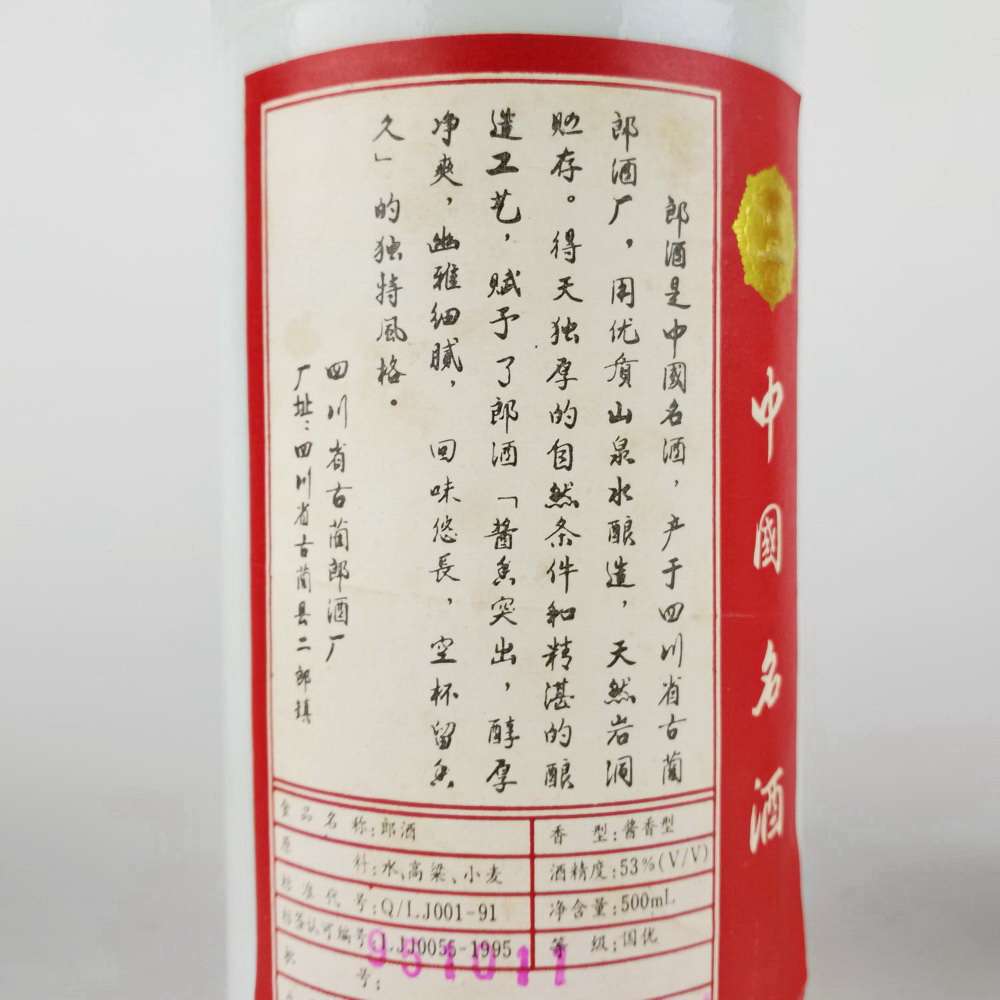 郎酒是中國名酒，产于四川省古蔺
郎酒厂，用优质山泉水酿造，天然岩洞
贮存。得天独厚的自然条件和精湛的酿
造工艺，赋予了郎酒「醬香突出，醇厚
净爽，幽雅细腻，回味悠長，空杯留香
久」的独特風格。
四川省古蔺郎酒厂
厂址：四川省古蔺县二郎镇
中國名酒
食品名称:郎酒
香型:酱香型
原料:水、高粱、小麦
酒精度:53%(V/V)
标准代号:Q/LJ001-91
净含量:500mL
标签认可编号:LJJ0055-1995
等级:国优
批号:
951011